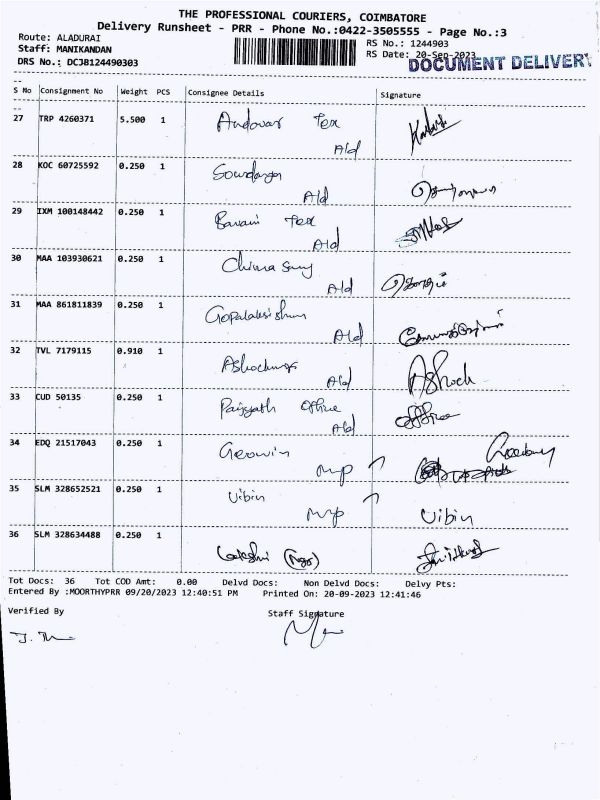 THE PROFESSIONAL COURIERS, COIMBATORE
Delivery Runsheet - PRR - Phone No.:0422-3505555 - Page No.:3
Route: ALADURAI
RS No.: 1244903
Staff: MANIKANDAN
RS Date: 20-Sep-2023
DOCUMENT DELIVERY
DRS No.: DCJ8124490303
S No Consignment No Weight PCS Consignee Details Signature
27 TRP 4260371 5.500 1 Andavar Tex
Ald
28 KOC 60725592 0.250 1
Ald
29 IXM 100148442 0.250 1 Bavani Tex
Ald
30 MAA 103930621 0.250 1 Chinna
Ald
31 MAA 861811839 0.250 1
Ald
32 TVL 7179115 0.910 1
Ald Ashock
33 CUD 50135 0.250 1 office
Ald
34 EDQ 21517043 0.250 1 Gerwin
MP
35 SLM 328652521 0.250 1 Vibin
MP Vibin
36 SLM 328634488 0.250 1
Tot Docs: 36 Tot COD Amt: 0.00 Delvd Docs: Non Delvd Docs: Delvy Pts:
Entered By :MOORTHYPRR 09/20/2023 12:40:51 PM Printed On: 20-09-2023 12:41:46
Verified By Staff Signature